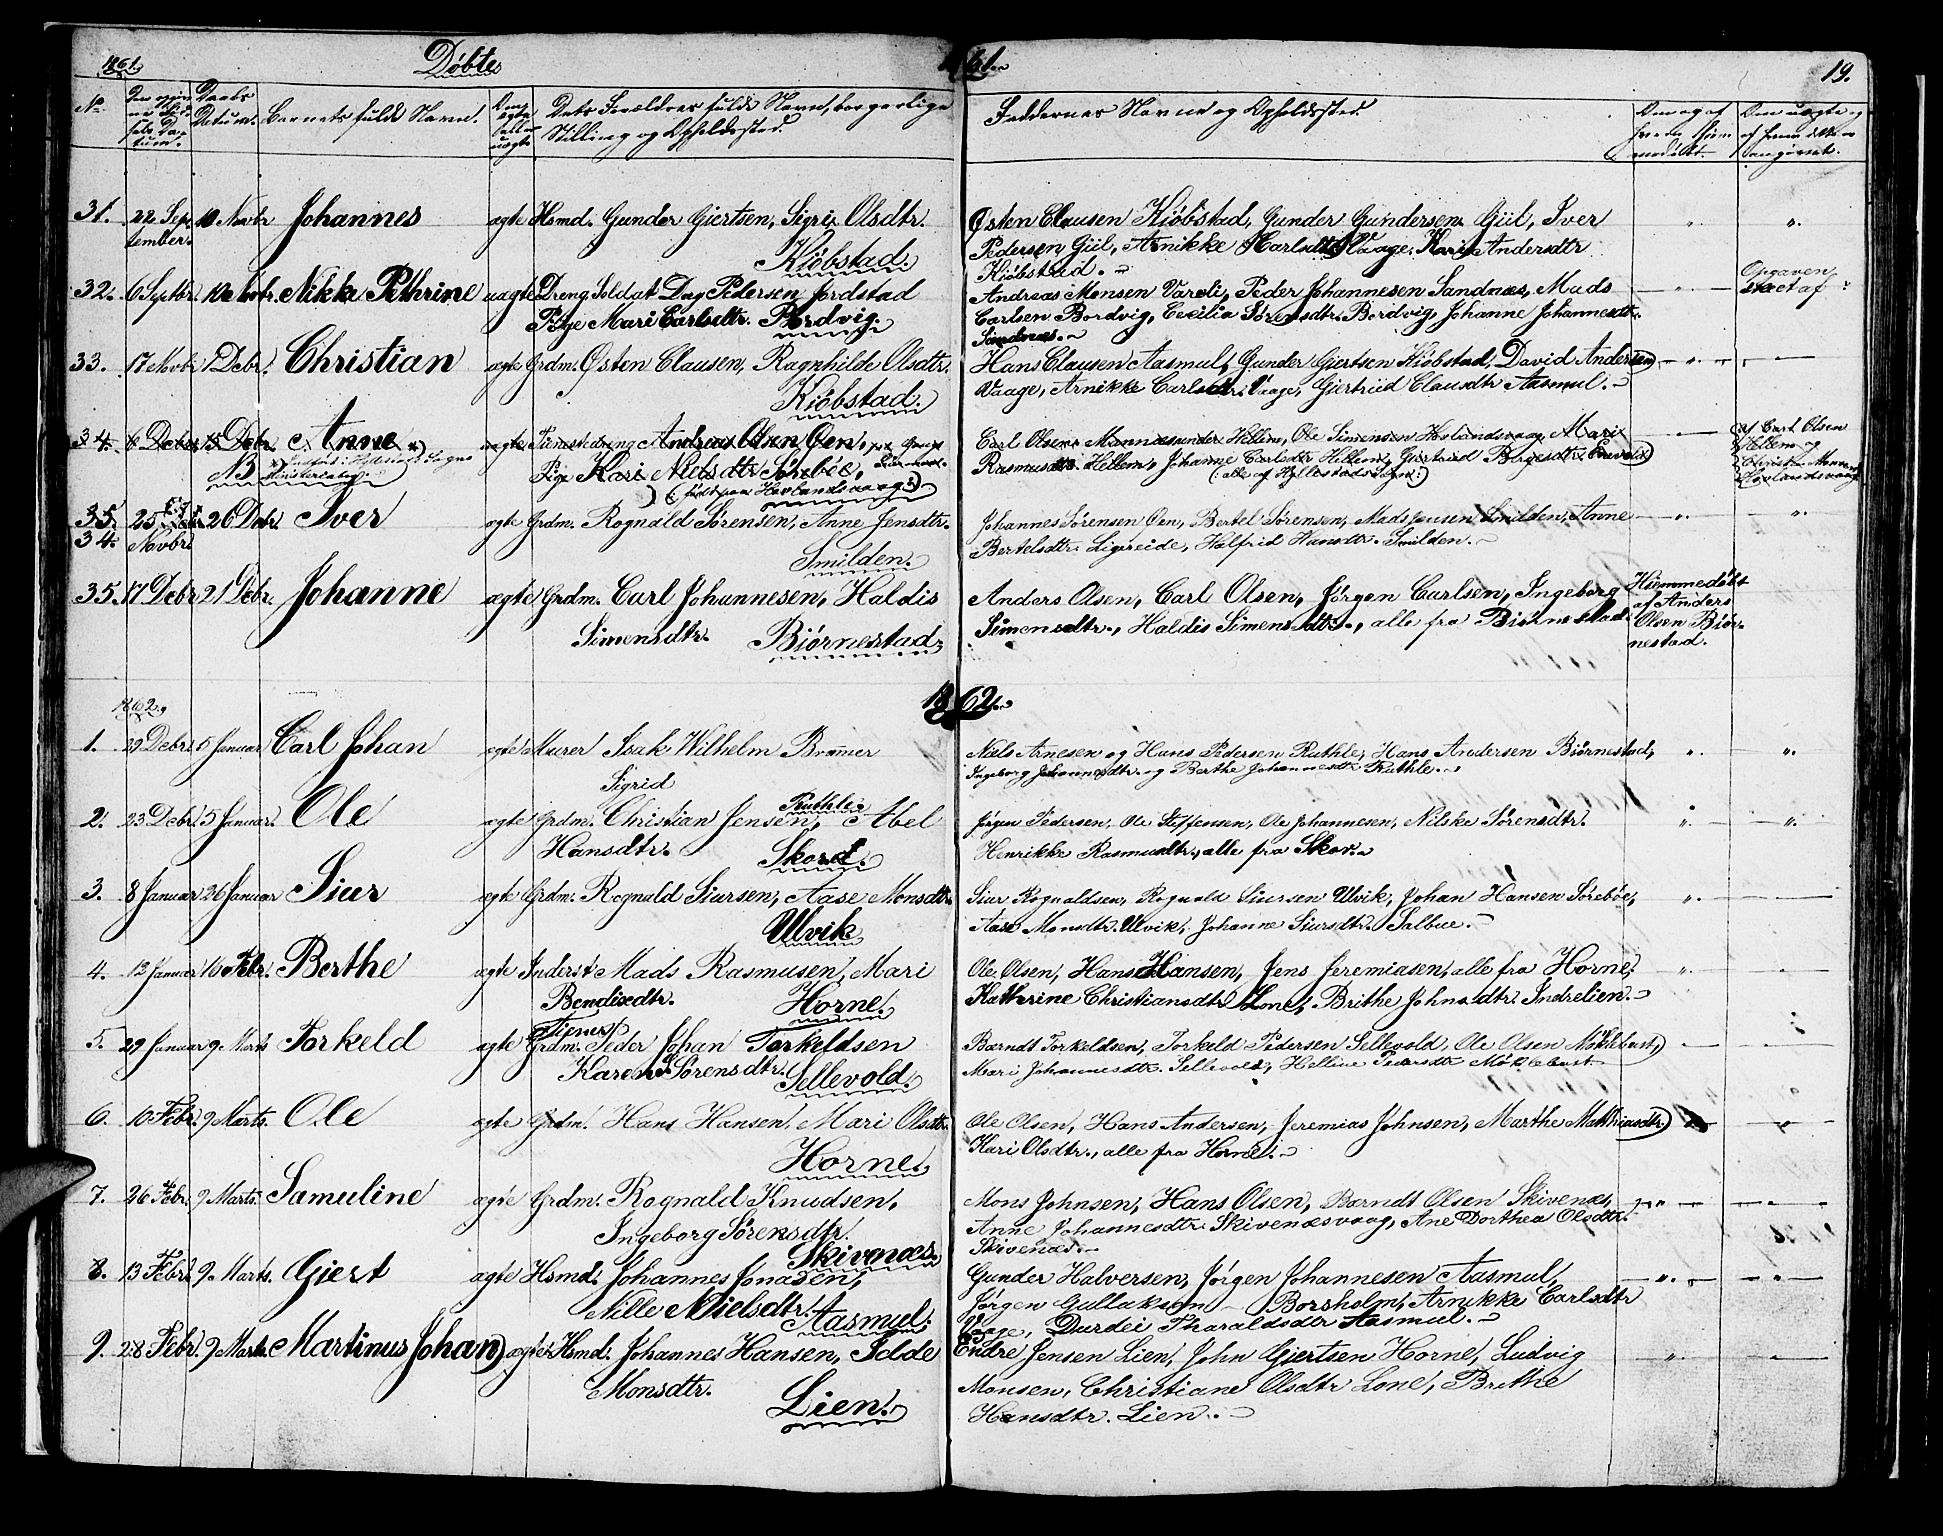 1861. Døbte 1861. 19.
No Daabs Datum. Barnets fulde Navn. Dets Forældres fulde Navn, borgerlige Stilling og Opholdssted. Faddernes Navne og Opholdssted.
31. 22 September. 10 Novbr Johannes ægte Hsmd. Gunder Giertsen, Sigri Olsdtr. Kiøbstad.
Østen Clausen Kiøbstad, Gunder Gundersen Giil, Iver
Pedersen Giil, Arnikke Carlsdtr Vaage, Kari Andersdtr
Kiøbstad.
32. 6 Septbr. Novbr. Nikka Pethrine uægte Dreng Soldat Dag Pedersen Jordstad
Pige Mari Carlsdtr. Bordvig.
Andreas Monsen Vareli, Peder Johannesen Sandnæs, Mads
Carlsen Bordvig, Cecilia Sørensdtr. Bordvig, Johanne Johannesdtr.
Sandnæs.
Opgaven exact af
33. 17 Novbr 1 Debr. Christian ægte Grdm. Østen Clausen, Ragnhilde Olsdtr.
Kiøbstad.
Hans Clausen Aasmul, Gunder Giertsen Kiøbstad, David Andersen
Vaage, Arnikke Carlsdtr. Vaage, Giertrud Clausdtr Aasmul.
34. 6 Debr 15 Debr. Anne uægte Tienestedreng Andreas Olsen Øen,
NB
Pige Kari Nielsdtr Sørebøe,
(født paa Hovlandsvaag)
Carl Olsen Mannes under Hellem, Ole Simensen Hovlandsvaag, Mari
Rasmusdtr Hellem, Johanne Carlsdtr Hellem, Giertrud Børgesdtr.
(alle af Hyllestads Sogn)
af Carl Olsen
Hellem og
Hovlandsvaag
35. 34. 25 Novbr. 26 Debr Iver ægte Grdm. Rognald Sørensen, Anne Jensdtr.
Smilden.
Johannes Sørensen Øen, Bertel Sørensen, Mads Jensen Smilden, Anne
Bertelsdtr. Ligereide, Halfrid Hansdtr. Smilden.
35. 17 Debr 21 Debr. Johanne ægte Grdm. Carl Johannesen, Haldis
Simensdtr. Biørnestad.
Anders Olsen, Carl Olsen, Jørgen Carlsen, Ingeborg
Simensdtr., Haldis Simensdtr., alle fra Biørnestad.
Hiemmedøbt
af Anders
Olsen Biør-
nestad.
1862. 1862.
1. 29 Debr. 5 Januar Carl Johan ægte Murer Isak Wilhelm Brammer
Sigrid
Ruthle.
Niels Arnesen og Hans Pedersen Ruthle, Hans Andersen Biørnestad,
Ingeborg Johannesdtr. og Berthe Johannesdtr Ruthle.
2. 23 Debr. 5 Januar. Ole ægte Grdm. Christian Jensen, Abel
Hansdtr. Skord.
Jørgen Pedersen, Ole Steffensen, Ole Johannesen, Nilske Sørensdtr.
Henrikke Rasmusdtr., alle fra Skor.
3. 8 Januar 26 Januar Siur ægte Grdm. Rognald Siursen, Aase Monsdtr.
Ulvik
Siur Rognaldsen, Rognald Siursen Ulvik, Johan Hansen Sørebøe,
Aase Monsdtr. Ulvik, Johanne Siursdtr. Salbue.
4. 13 Januar 16 Febr. Berthe ægte Inderst Mads Rasmusen, Mari
Bendixdtr. Horne.
Ole Olsen, Hans Hansen, Jens Jeremiasen, alle fra Horne,
Kathrine Christiansdtr Lone, Brithe Johnsdtr. Indrelien.
5. 29 Januar 9 Marts Torkeld ægte Grdm. Peder Johan Torkeldsen
Karen Sørensdtr. Sellevold.
Barndt Torkeldsen, Torkeld Pedersen Sellevold, Ole Olsen Møklebust,
Mari Johannesdtr. Sellevold, Helline Pedersdtr Møklebust
6. 10 Febr. 9 Marts. Ole ægte Grdm. Hans Hansen, Mari Olsdtr.
Horne.
Ole Olsen, Hans Andersen, Jeremias Johnsen, Marthe Mathiasdtr.
Kari Olsdtr., alle fra Horne.
7. 26 Febr. 9 Marts. Samuline ægte Grdm. Rognald Knudsen,
Ingeborg Sørensdtr.
Skivenæs.
Mons Johnsen, Hans Olsen, Barndt Olsen Skivenæs,
Anne Johannesdtr. Skivenæsvaag, Ane Dorthea Olsdtr.
Skivenæs.
8. 13 Febr. 9 Marts. Giert ægte Hsmd. Johannes Jonasen,
Nille Nielsdtr. Aasmul.
Gunder Halversen, Jørgen Johannesen Aasmul,
Jørgen Gullaksen Borsholm, Arnikke Carlsdtr
Vaage, Durdei Tharaldsdtr Aasmul.
9. 28 Febr. 9 Marts Martinus Johan ægte Hsmd. Johannes Hansen, Idde
Monsdtr. Lien.
Endre Jensen Lien, John Giertsen Horne, Ludvig
Monsen, Christiane Olsdtr Lone, Brithe
Hansdtr. Lien.